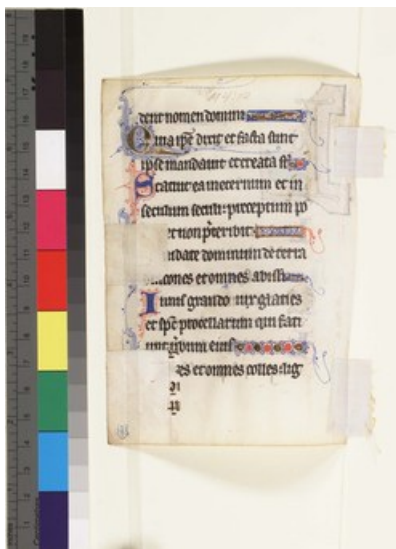 dent nomen domini
Quia ipe dixit et facta sunt
ipse mandauit et creata st
Statuit ea in eternum et in
seculum seculi preceptum po
et non preteribit
udate dominum de terra
cones et omnes abissi
Ignis grando nix glacies
et spc procellarum que faci
unt uerbum eius
es et omnes colles lig